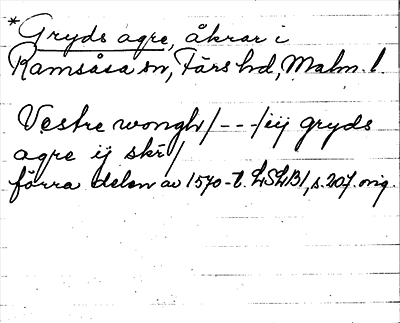 *Gryds agre, åkrar i
Ramsåsa sn, Färs hd, Malm. l.
Vestre wongh/ - - - /iij gryds
agre ij skr/
förra delen av 1570-t. LSLB1, s. 207. orig.